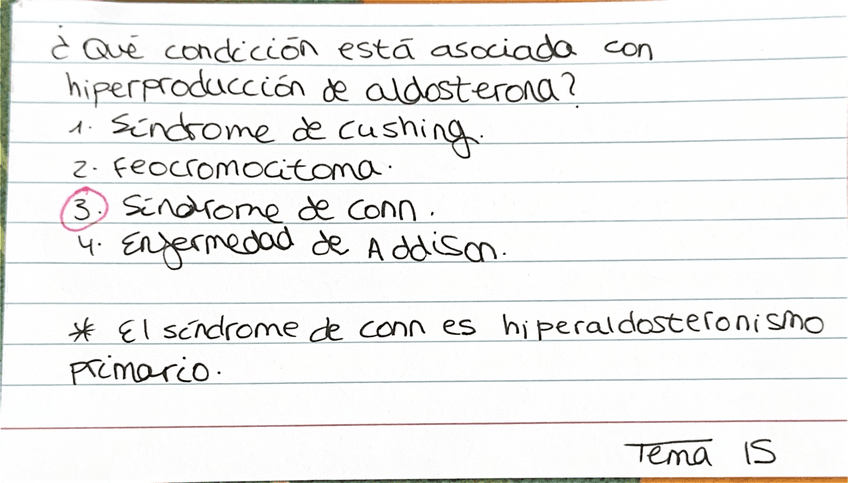 ¿Qué condición está asociada con
hiperproducción de aldosterona?
1. Síndrome de cushing.
2. Feocromocitoma.
3. Síndrome de conn.
4. Enfermedad de Addison.
* El síndrome de conn es hiperaldosteronismo
primario.
Tema 15